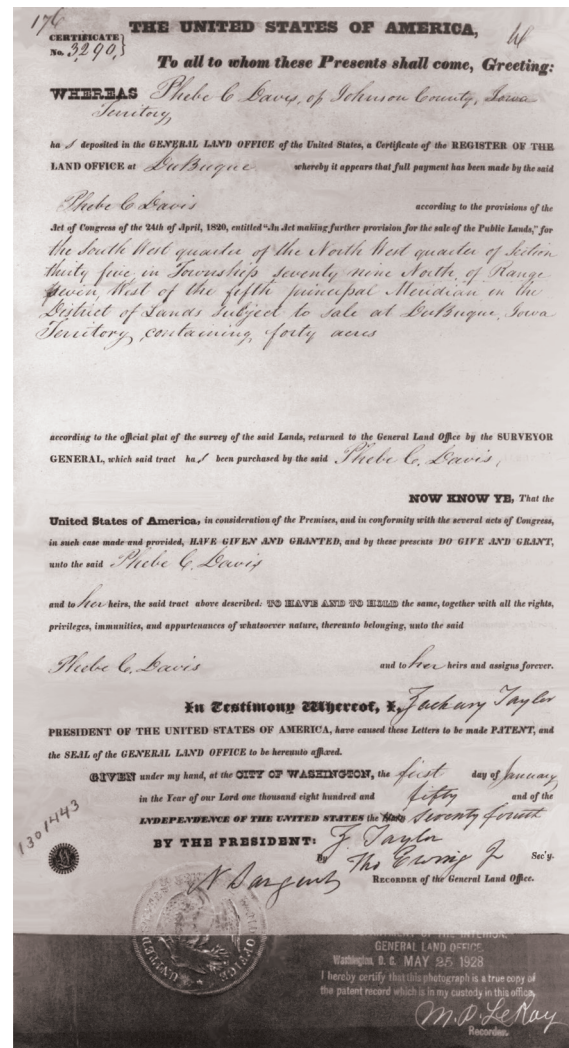 176
THE UNITED STATES OF AMERICA,
CERTIFICATE
No. 3290,
To all to whom these Presents shall come, Greeting:
WHEREAS Phebe C Davis, of Johnson County, Iowa
Territory,
ha s deposited in the GENERAL LAND OFFICE of the United States, a Certificate of the REGISTER OF THE
LAND OFFICE at DuBuque whereby it appears that full payment has been made by the said
Phebe C Davis according to the provisions of the
Act of Congress of the 24th of April, 1820, entitled "An Act making further provision for the sale of the Public Lands," for
the South West quarter of the North West quarter of Section
thirty five in Township seventy nine North, of Range
seven West of the fifth principal Meridian in the
District of Lands subject to sale at DuBuque, Iowa
Territory, containing forty acres
according to the official plat of the survey of the said Lands, returned to the General Land Office by the SURVEYOR
GENERAL, which said tract ha s been purchased by the said Phebe C. Davis,
NOW KNOW YE, That the
United States of America, in consideration of the Premises, and in conformity with the several acts of Congress,
in such case made and provided, HAVE GIVEN AND GRANTED, and by these presents DO GIVE AND GRANT,
unto the said Phebe C. Davis
and to her heirs, the said tract above described: TO HAVE AND TO HOLD the same, together with all the rights,
privileges, immunities, and appurtenances of whatsoever nature, thereunto belonging, unto the said
Phebe C. Davis and to her heirs and assigns forever.
In Testimony Whereof, I, Zachary Taylor
PRESIDENT OF THE UNITED STATES OF AMERICA, have caused these Letters to be made PATENT, and
the SEAL of the GENERAL LAND OFFICE to be hereunto affixed.
GIVEN under my hand, at the CITY OF WASHINGTON, the first day of January
in the Year of our Lord one thousand eight hundred and fifty and of the
INDEPENDENCE OF THE UNITED STATES the Seventy fourth
BY THE PRESIDENT: Z Taylor
By Tho Ewing Jr Sec'y.
N Sargent RECORDER of the General Land Office.
1301443
DEPARTMENT OF THE INTERIOR.
GENERAL LAND OFFICE
Washington, D. C. MAY 25 1928
I hereby certify that this photograph is a true copy of
the patent record which is in my custody in this office,
M. P. LeRoy
Recorder.